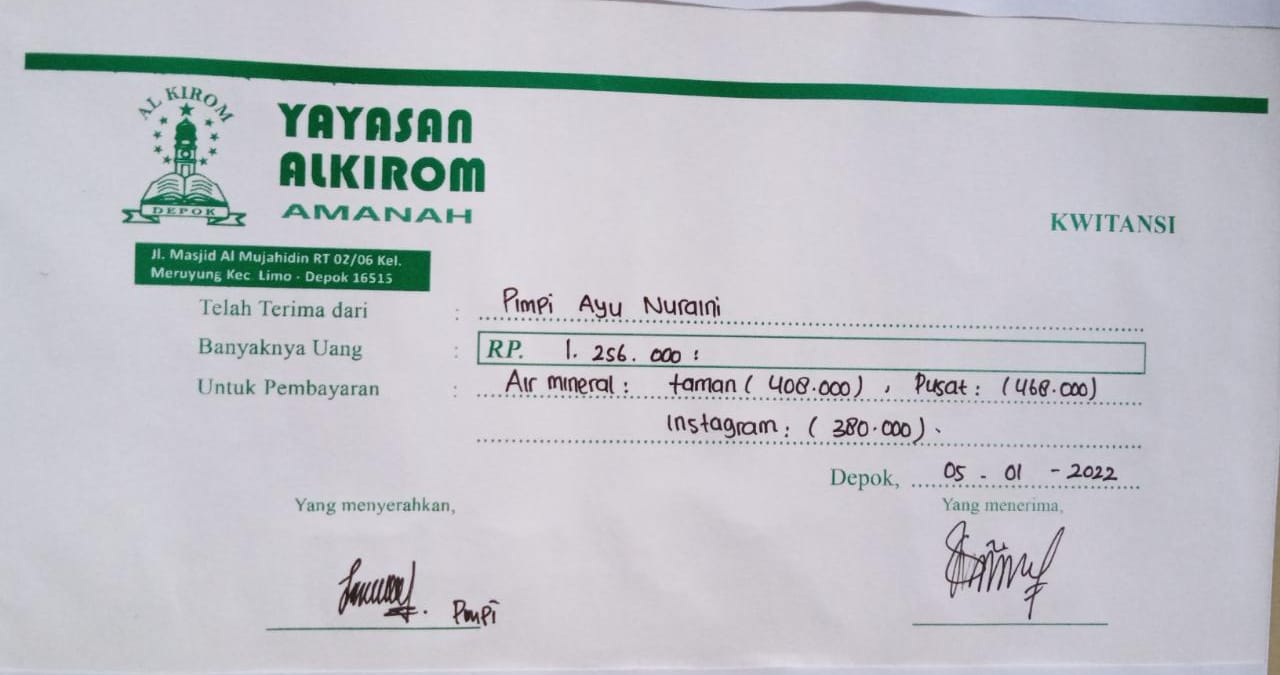 AL KIROM
DEPOK
YAYASAN
ALKIROM
AMANAH
KWITANSI
Jl. Masjid Al Mujahidin RT 02/06 Kel.
Meruyung Kec Limo - Depok 16515
Telah Terima dari : Pimpi Ayu Nuraini
Banyaknya Uang : RP. 1. 256. 000 :
Untuk Pembayaran : Air mineral : taman ( 408.000) , Pusat : (468.000)
Instagram : ( 380.000) .
Depok, 05 - 01 - 2022
Yang menyerahkan, Yang menerima,
Pimpi